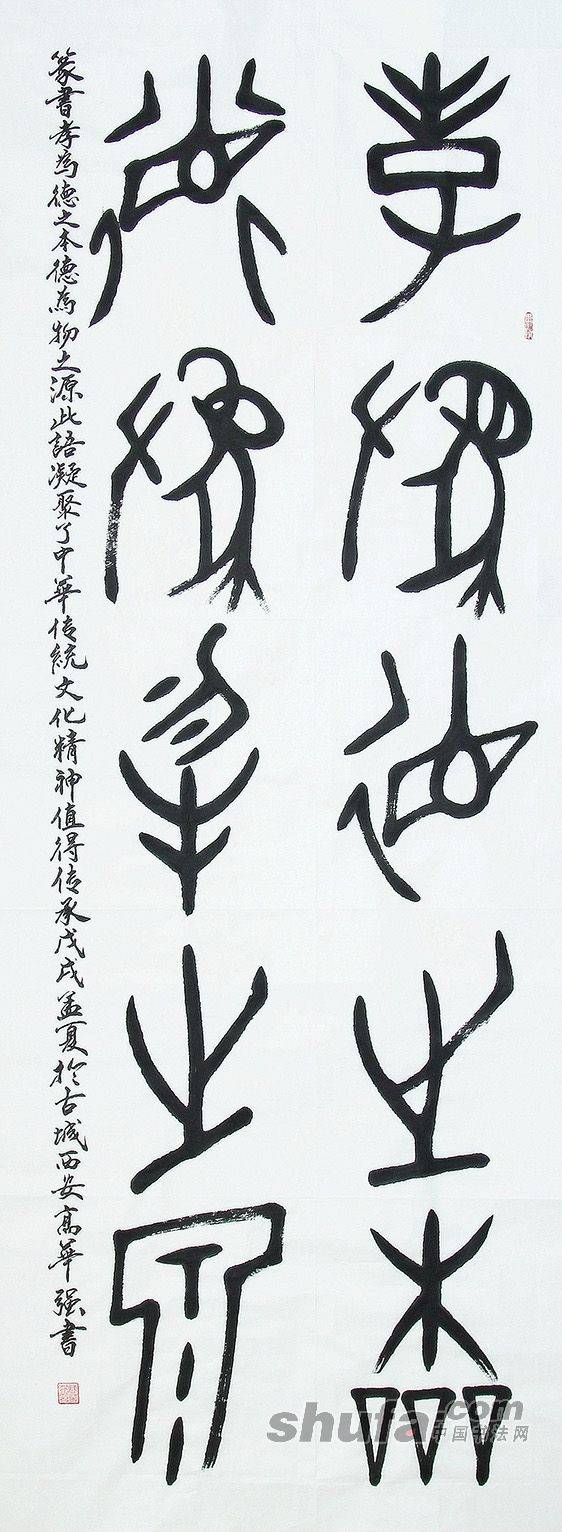 孝為德之本
德為物之源
篆書孝為德之本德為物之源此語凝聚了中華传統文化精神值得传承戊戌孟夏於古城西安高華强書
shufa.com
中国书法网